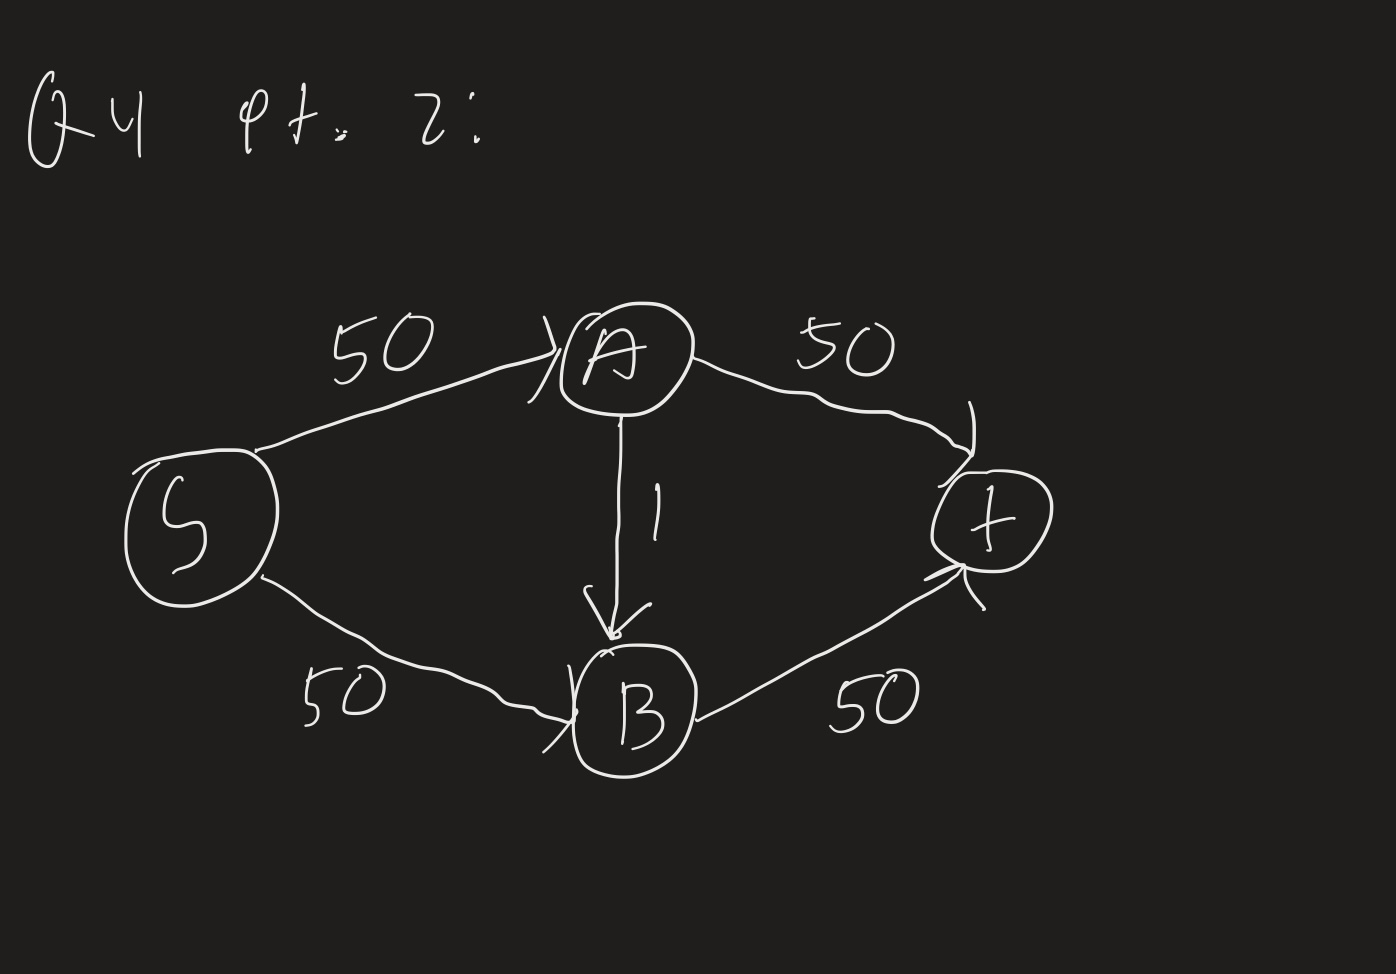 Q4 pt. 2:
50
A
50
S
1
t
50
B
50